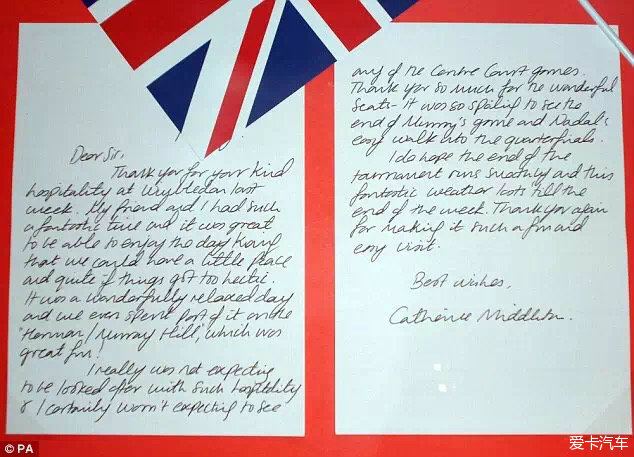 Dear Sir,
Thank you for your kind
hospitality at Wimbledon last
week. My friend and I had such
a fantastic time and it was great
to be able to enjoy the day knowing
that we could have a little peace
and quite if things got too hectic.
It was a wonderfully relaxed day
and we even spent part of it on the
"Henman / Murray Hill", which was
great fun!
I really was not expecting
to be looked after with such hospitality
& I certainly wasn't expecting to see
any of the Centre Court games.
Thank you so much for the wonderful
seats - it was so spoiling to see the
end of Murray's game and Nadal's
easy walk into the quarterfinals.
I do hope the end of the
tournament runs smoothly and this
fantastic weather lasts till the
end of the week. Thank you again
for making it such a fun and
easy visit.
Best wishes,
Catherine Middleton.
© PA
爱卡汽车